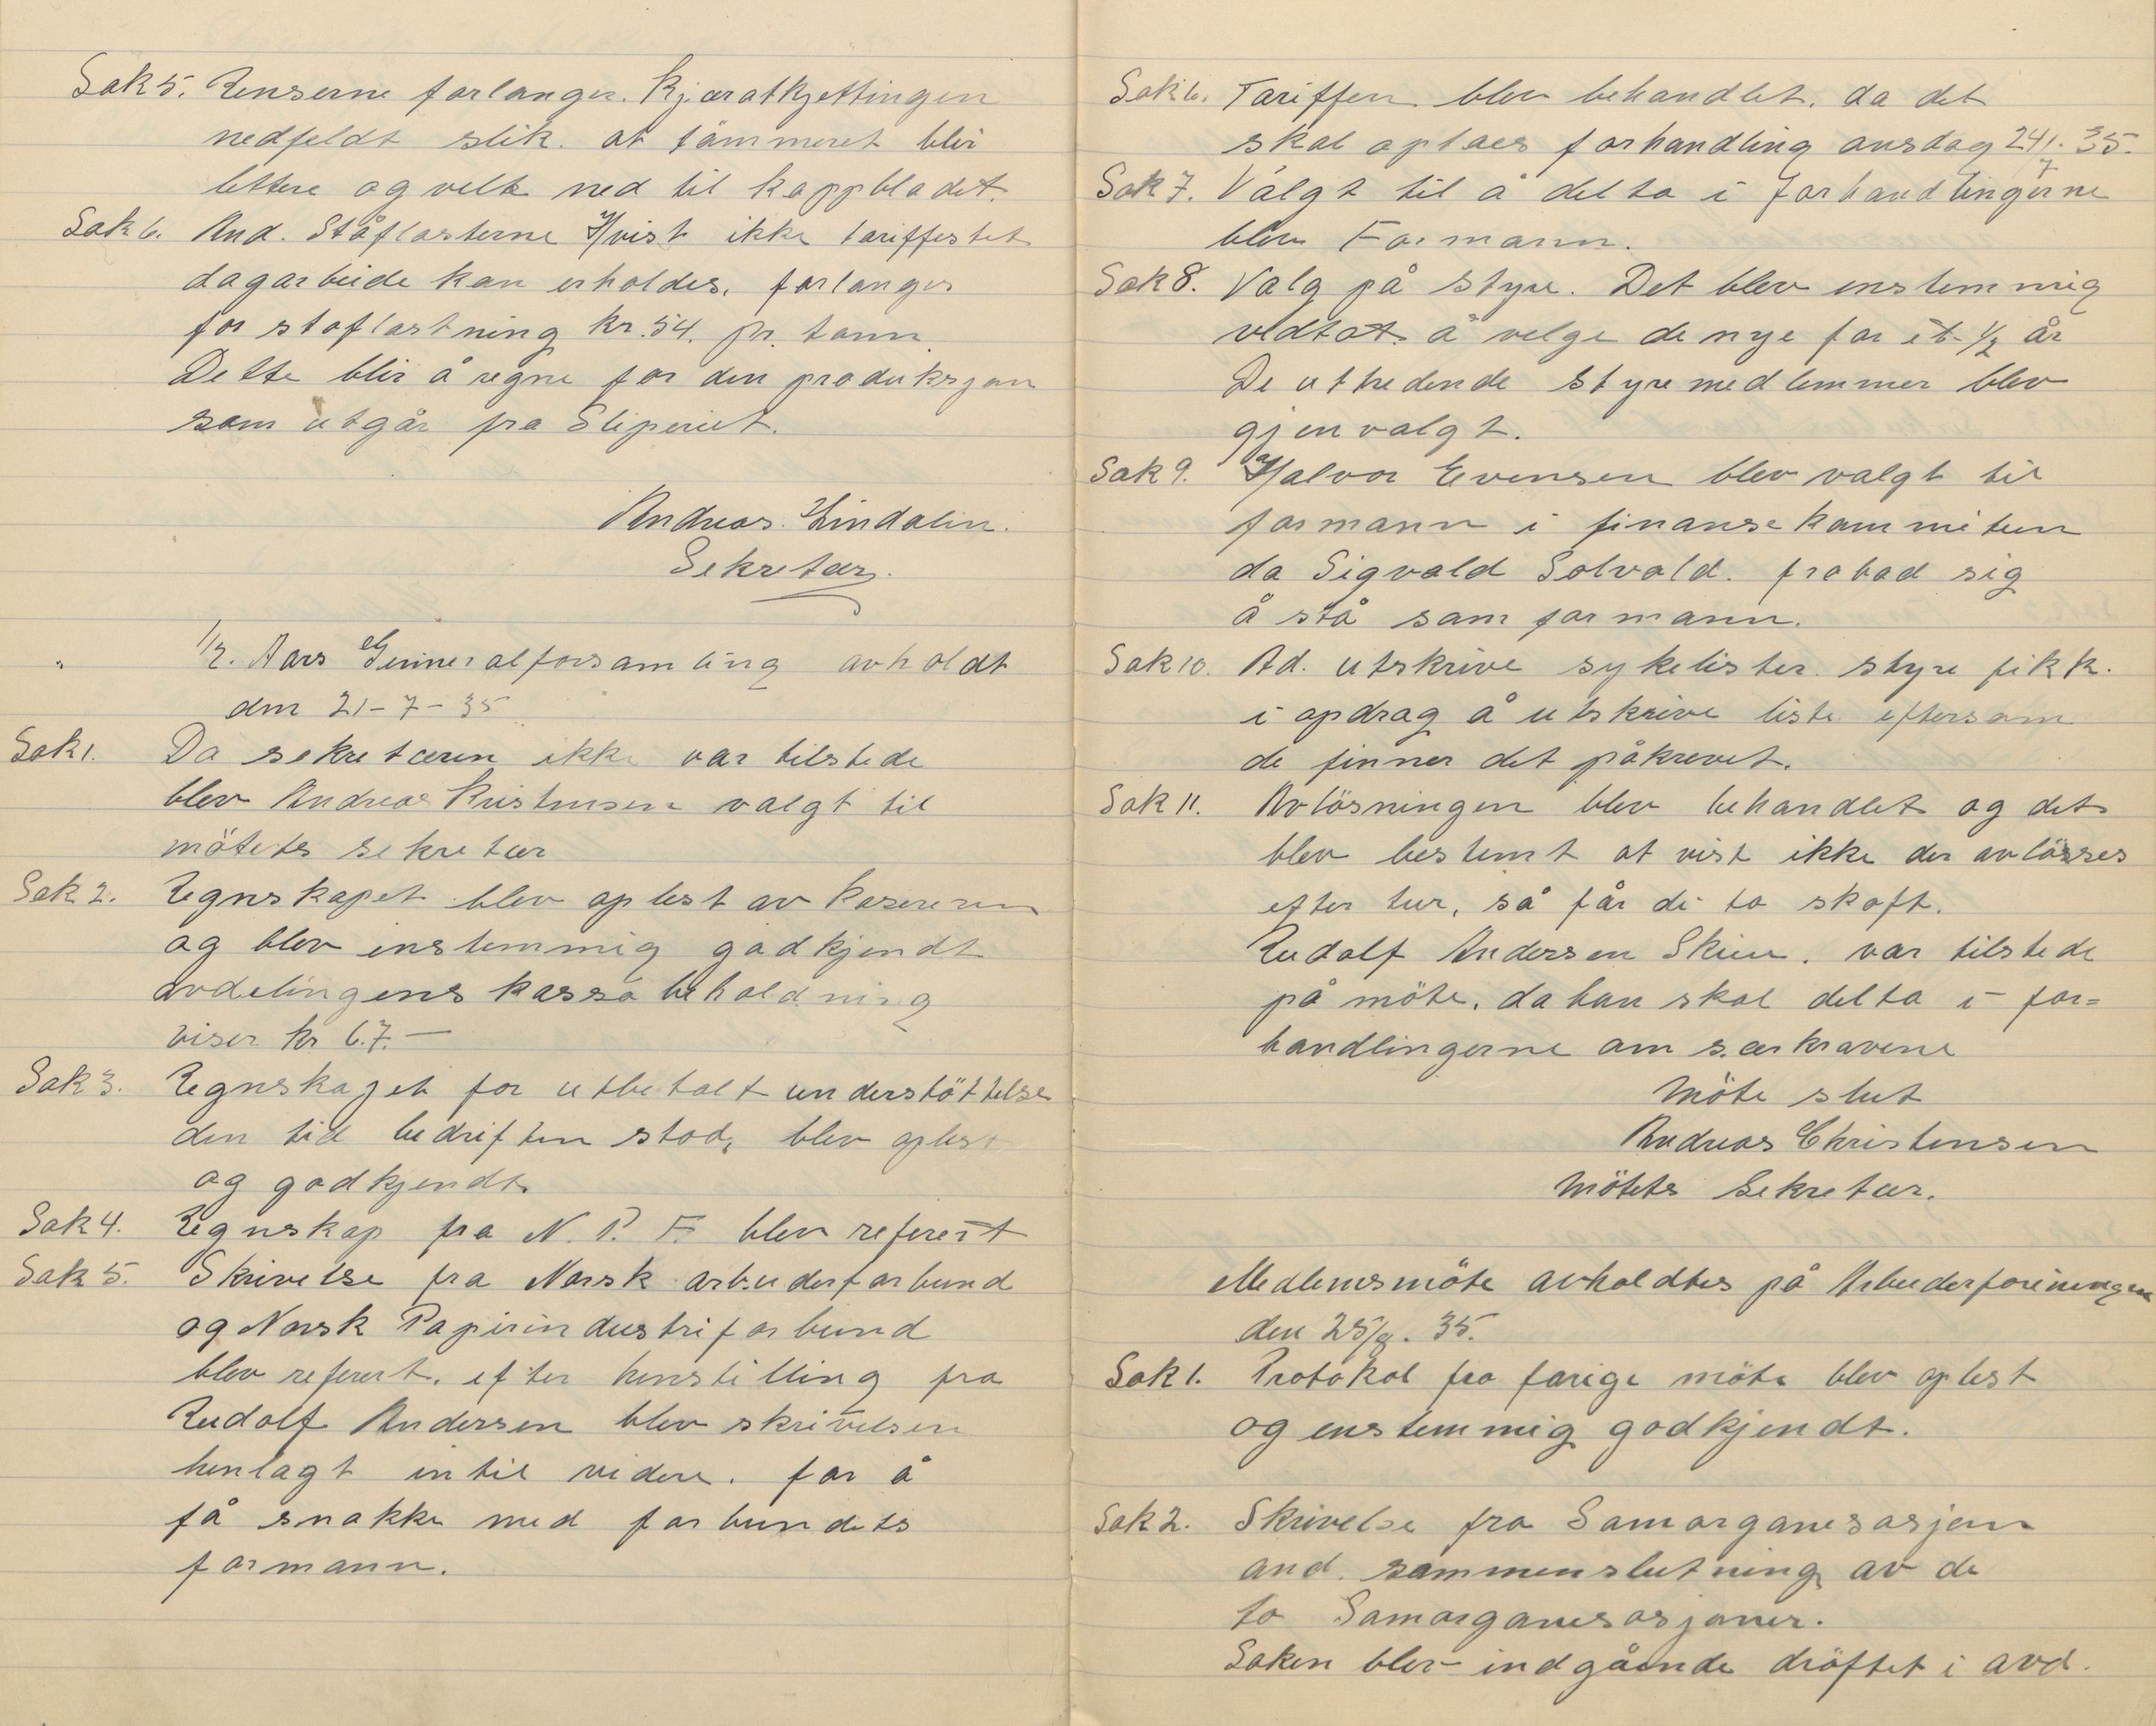 Sak 5. Renserne forlanger. Kjæratkjettingen
nedfeldt slik. at tømmeret blir
lettere og velte ned til kappbladet.
Sak 6. And. Ståflasterne Hvist ikke tariffestet
dagarbeide kan erholdes, forlanges
for stoflastning kr. 54. pr. tonn
Dette blir å regne for den produksjon
som utgår fra Sliperiet.
Andreas Lindalin.
Sekretær.
1/2. Aars Generalforsamling avholdt
den 21-7-35
Sak 1. Da sekretæren ikke var tilstede
blev Andreas Kristensen valgt til
mötets sekretær
Sak 2. Regnskapet blev oplest av kasereren
og blev enstemmig godkjendt
avdelingens kassa beholdning
viser kr 67.—
Sak 3. Regnskapet for utbetalt understöttelse
den tid bedriften stod, blev oplest
og godkjendt.
Sak 4. Regnskap fra N. P. F. blev referert
Sak 5. Skrivelse fra Norsk arbeiderforbund
og Norsk Papirindustriforbund
blev referert. efter henstilling fra
Rudolf Andersen blev skrivelsen
henlagt intil videre. for å
få snakke med forbundets
formann.
Sak 6. Tariffen blev behandlet. da det
skal optaes forhandling onsdag 24/7. 35.
Sak 7. Valgt til å delta i forhandlingerne
blev Formann.
Sak 8. Valg på styre. Det blev enstemmig
vedtat å velge de nye for et 1/2 år
De uttredende styremedlemmer blev
gjenvalgt.
Sak 9. Halvor Evensen blev valgt til
formann i finansekommiteen
da Sigvald Solvold. frabad sig
å stå som formann.
Sak 10. Ad. utskrive sykelister. styre fikk.
i opdrag å utskrive liste eftersom
de finner det påkrevet.
Sak 11. Avlösningen blev behandlet og det
blev bestemt at vist ikke der avlösses
efter tur, så får de ta skoft.
Rudolf Andersen Skien. var tilstede
på möte, da han skal delta i for=
handlingerne om særkravene
Möte slut
Andreas Christensen
Mötets Sekretær.
Medlemsmöte avholdtes på Arbeiderforeningen
den 25/8. 35.
Sak 1. Protokol fra forige möte blev oplest
og enstemmig godkjendt.
Sak 2. Skrivelse fra Samorganesasjon
and. sammenslutning av de
to Samorganesasjoner.
Saken blev indgående dröftet i avd.